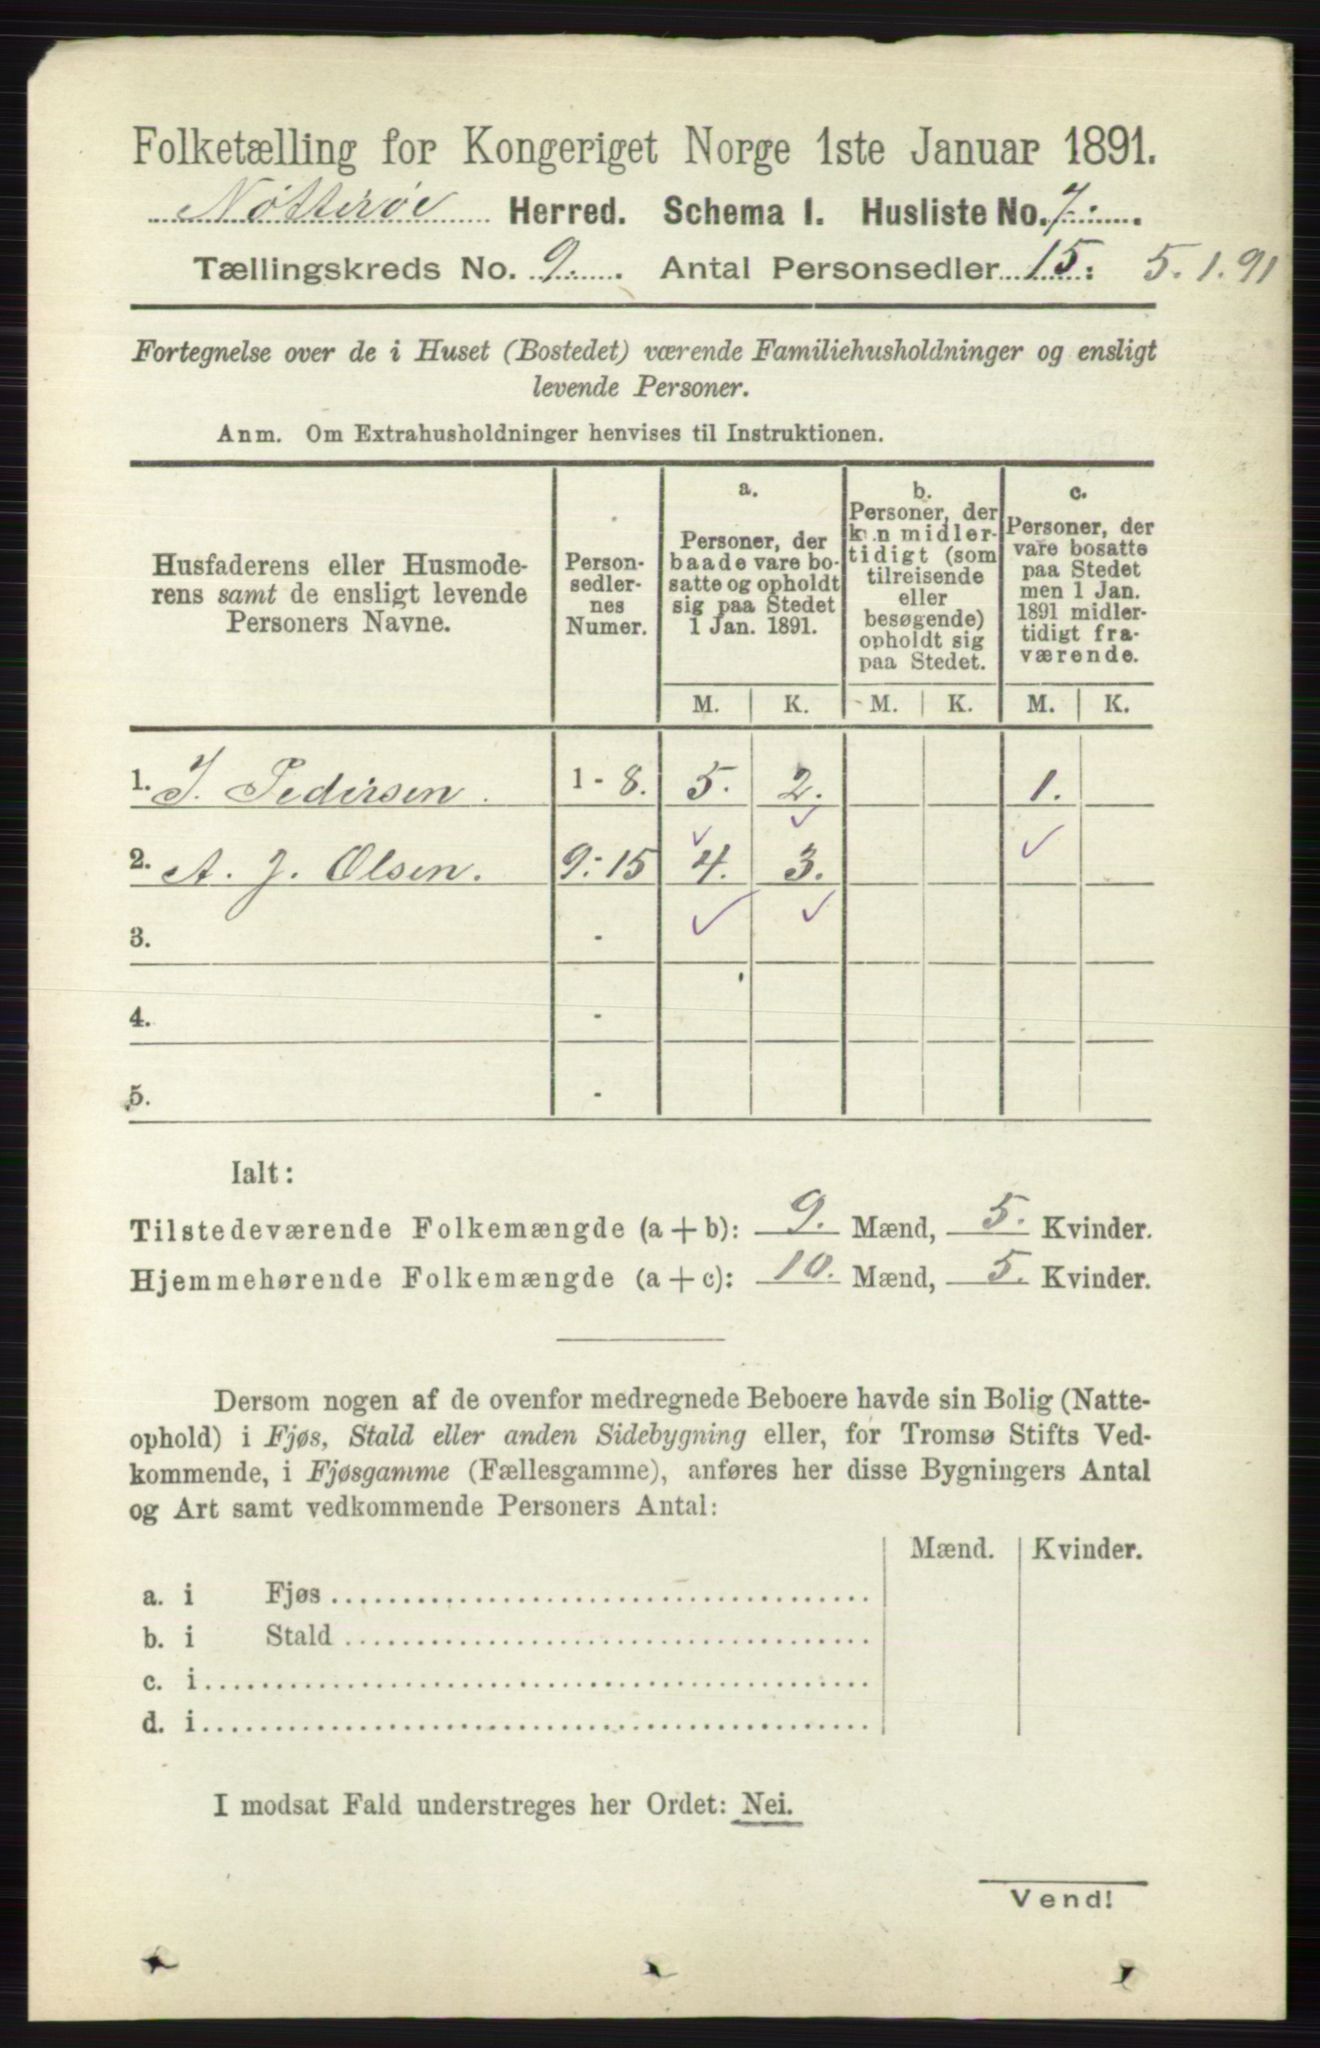 Folketælling for Kongeriget Norge 1ste Januar 1891.
Nøtterøe Herred. Schema I. Husliste No. 7.
Tællingskreds No. 9. Antal Personsedler 15: 5.1.91
Fortegnelse over de i Huset (Bostedet) værende Familiehusholdninger og ensligt
levende Personer.
Anm. Om Extrahusholdninger henvises til Instruktionen.
Husfaderens eller Husmode-
rens samt de ensligt levende
Personers Navne.
Person-
sedler-
nes
Numer.
a.
Personer, der
baade vare bo-
satte og opholdt
sig paa Stedet
1 Jan. 1891.
b.
Personer, der
kun midler-
tidigt (som
tilreisende
eller
besøgende)
opholdt sig
paa Stedet.
c.
Personer, der
vare bosatte
paa Stedet
men 1 Jan.
1891 midler-
tidigt fra-
værende.
M. K. M. K. M. K.
1. J. Pedersen. 1 - 8. 5. 2. 1.
2. A. J. Olsen. 9.-15 4. 3.
3. -
4. -
5. -
Ialt:
Tilstedeværende Folkemængde (a + b): 9. Mænd, 5. Kvinder.
Hjemmehørende Folkemængde (a + c): 10. Mænd, 5. Kvinder.
Dersom nogen af de ovenfor medregnede Beboere havde sin Bolig (Natte-
ophold) i Fjøs, Stald eller anden Sidebygning eller, for Tromsø Stifts Ved-
kommende, i Fjøsgamme (Fællesgamme), anføres her disse Bygningers Antal
og Art samt vedkommende Personers Antal:
Mænd. Kvinder.
a. i Fjøs
b. i Stald
c. i
d. i
I modsat Fald understreges her Ordet: Nei.
Vend!